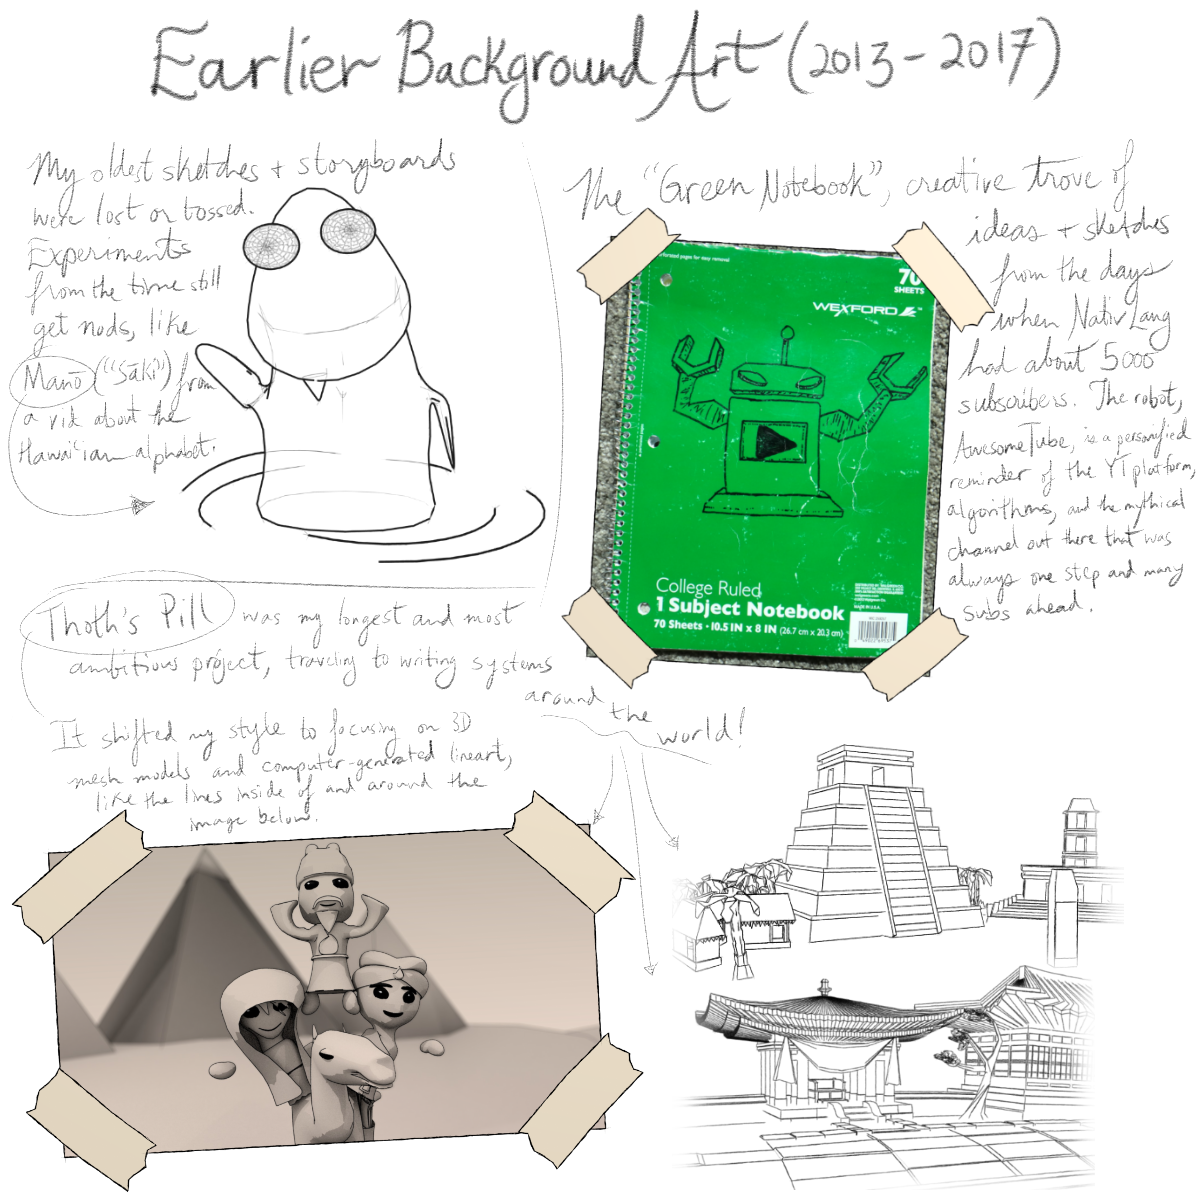 Earlier Background Art (2013-2017)
My oldest sketches + storyboards
were lost or tossed.
Experiments
from the time still
get nods, like
Manō ("Sāki") from
a vid about the
Hawaiʻian alphabet.
The "Green Notebook", creative trove of
ideas + sketches
from the days
when NativLang
had about 5000
subscribers. The robot,
AwesomeTube, is a personified
reminder of the YT platform,
algorithms, and the mythical
channel out there that was
always one step and many
subs ahead.
perforated pages for easy removal
70
SHEETS
WEXFORD
College Ruled
1 Subject Notebook
70 Sheets • 10.5 IN x 8 IN (26.7 cm x 20.3 cm)
MADE IN U.S.A.
Thoth's Pill was my longest and most
ambitious project, traveling to writing systems
around the
world!
It shifted my style to focusing on 3D
mesh models and computer-generated lineart,
like the lines inside of and around the
image below.